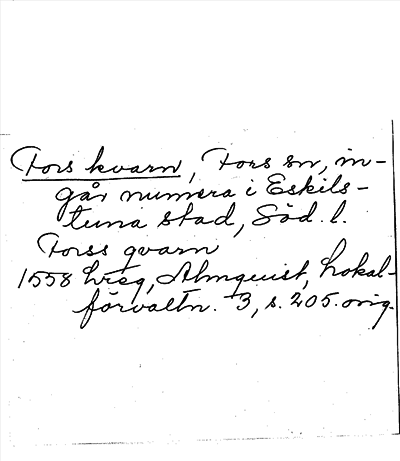 Fors kvarn, Fors sn, in-
går numera i Eskils-
tuna stad, Söd. l.
Forss qvarn
1558 hreg, Almquist, Lokal-
förvaltn. 3, s. 205. orig.